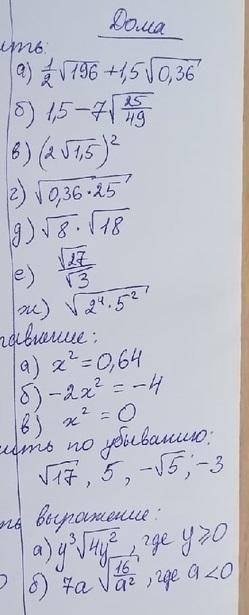 Дома
ить:
а) 1/2 √196 + 1,5 √0,36
б) 1,5 - 7 √(25/49)
в) (2√1,5)²
г) √(0,36 · 25)
д) √8 · √18
е) √27/√3
ж) √(2⁴ · 5²)
авнение:
а) x² = 0,64
б) -2x² = -4
в) x² = 0
ить по убыванию:
√17, 5, -√5, -3
ть выражение:
а) y³√(4y²), где y ⩾ 0
б) 7a √(16/a²), где a < 0